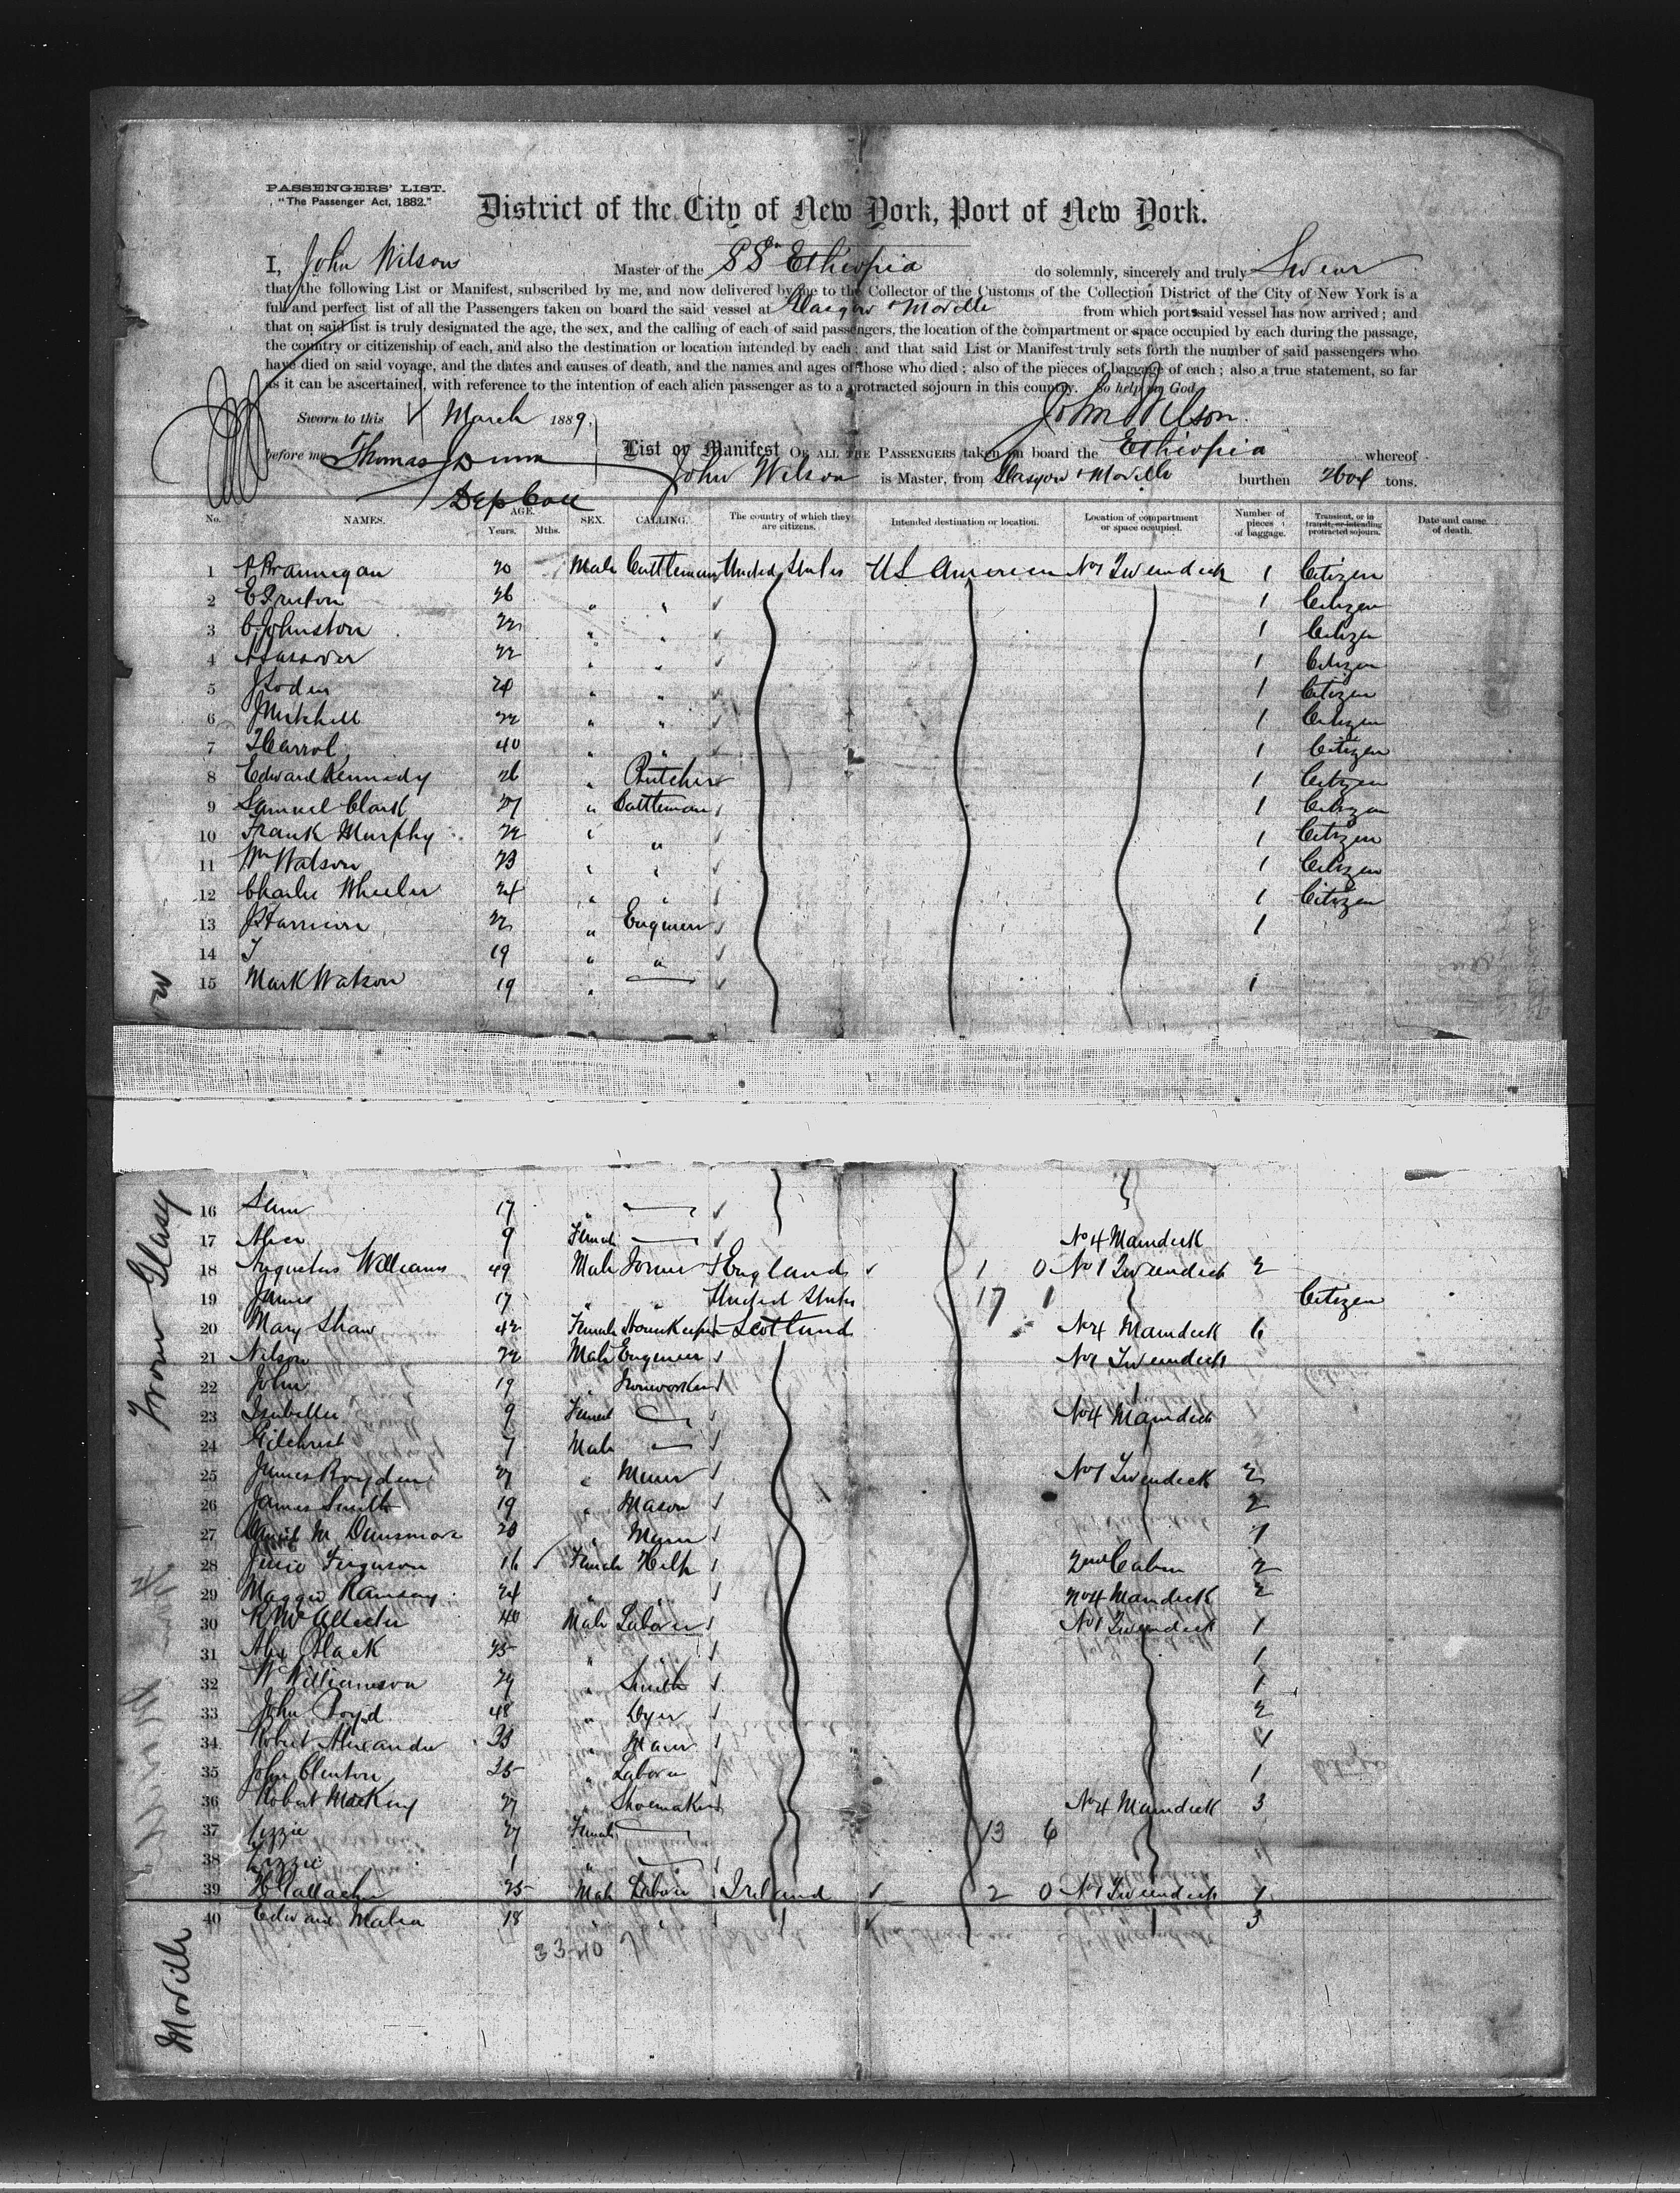 PASSENGERS' LIST.
"The Passenger Act, 1882."
District of the City of New York, Port of New York.
I, John Wilson Master of the SS Ethiopia do solemnly, sincerely and truly Swear
that the following List or Manifest, subscribed by me, and now delivered by me to the Collector of the Customs of the Collection District of the City of New York is a
full and perfect list of all the Passengers taken on board the said vessel at Glasgow & Moville from which ports said vessel has now arrived; and
that on said list is truly designated the age, the sex, and the calling of each of said passengers, the location of the compartment or space occupied by each during the passage,
the country or citizenship of each, and also the destination or location intended by each; and that said List or Manifest truly sets forth the number of said passengers who
have died on said voyage, and the dates and causes of death, and the names and ages of those who died; also of the pieces of baggage of each; also a true statement, so far
as it can be ascertained, with reference to the intention of each alien passenger as to a protracted sojourn in this country. So help me God
Sworn to this 4 March 1889. John Wilson.
before me Thomas Dunn List or Manifest OF ALL THE PASSENGERS taken on board the Ethiopia whereof
Dep Coll John Wilson is Master, from Glasgow & Moville burthen 2604 tons.
No. NAMES. AGE. Years. Mths. SEX. CALLING. The country of which they are citizens. Intended destination or location. Location of compartment or space occupied. Number of pieces of baggage. Transient, or in transit, or intending protracted sojourn. Date and cause of death.
1 Brannigan 20 Male Cattleman United States US America No1 Tweendeck 1 Citizen
2 26 " " 1 Citizen
3 C Johnston 22 " " 1 Citizen
4 22 " " 1 Citizen
5 " " 1 Citizen
6 J Mitchell 22 " " 1 Citizen
7 Carrol 40 " " 1 Citizen
8 Edward Kennedy 26 " Butcher 1 Citizen
9 Samuel Clark 27 " Cattleman 1 Citizen
10 Frank Murphy 22 " " 1 Citizen
11 Wm Watson 23 " " 1 Citizen
12 Charles Wheeler 24 " " 1 Citizen
13 J Harrison 22 " Engineer 1
14 J 19 " "
15 Mark Watson 19 " 1
From Glasgow
16 Sam 17 "
17 9 Female No4 Maindeck
18 Augustus Williams 49 Male England 1 0 No1 Tweendeck 2
19 James 17 " " United States 17 1 Citizen
20 Mary Shaw 42 Female Housekeeper Scotland No4 Maindeck 6
21 Nelson 22 Male Engineer No1 Tweendeck
22 John 19 " Ironworker
23 Isabella 9 Female No4 Maindeck
24 Gilchrist 7 Male
25 James Boyden 27 " Miner No1 Tweendeck 2
26 James Smith 19 " Mason 2
27 M. Dunsmore " 1
28 Ferguson 16 Female Help 2nd Cabin 2
29 Maggie Ramsay 24 " " No4 Maindeck 2
30 40 Male Laborer No1 Tweendeck 1
31 Alex Black " " 1
32 W Williamson 29 " Smith 1
33 John Boyd 48 " Dyer 2
34 Robert Alexander 33 "
35 John Clinton " Laborer 1
36 Robert 27 " Shoemaker No4 Maindeck 3
37 Lizzie 27 Female 13 6
38 Lizzie 1 "
39 Gallacher 25 Male Labor Ireland 2 0 No1 Tweendeck 1
40 Edward 18 " " 3
33 40
Moville